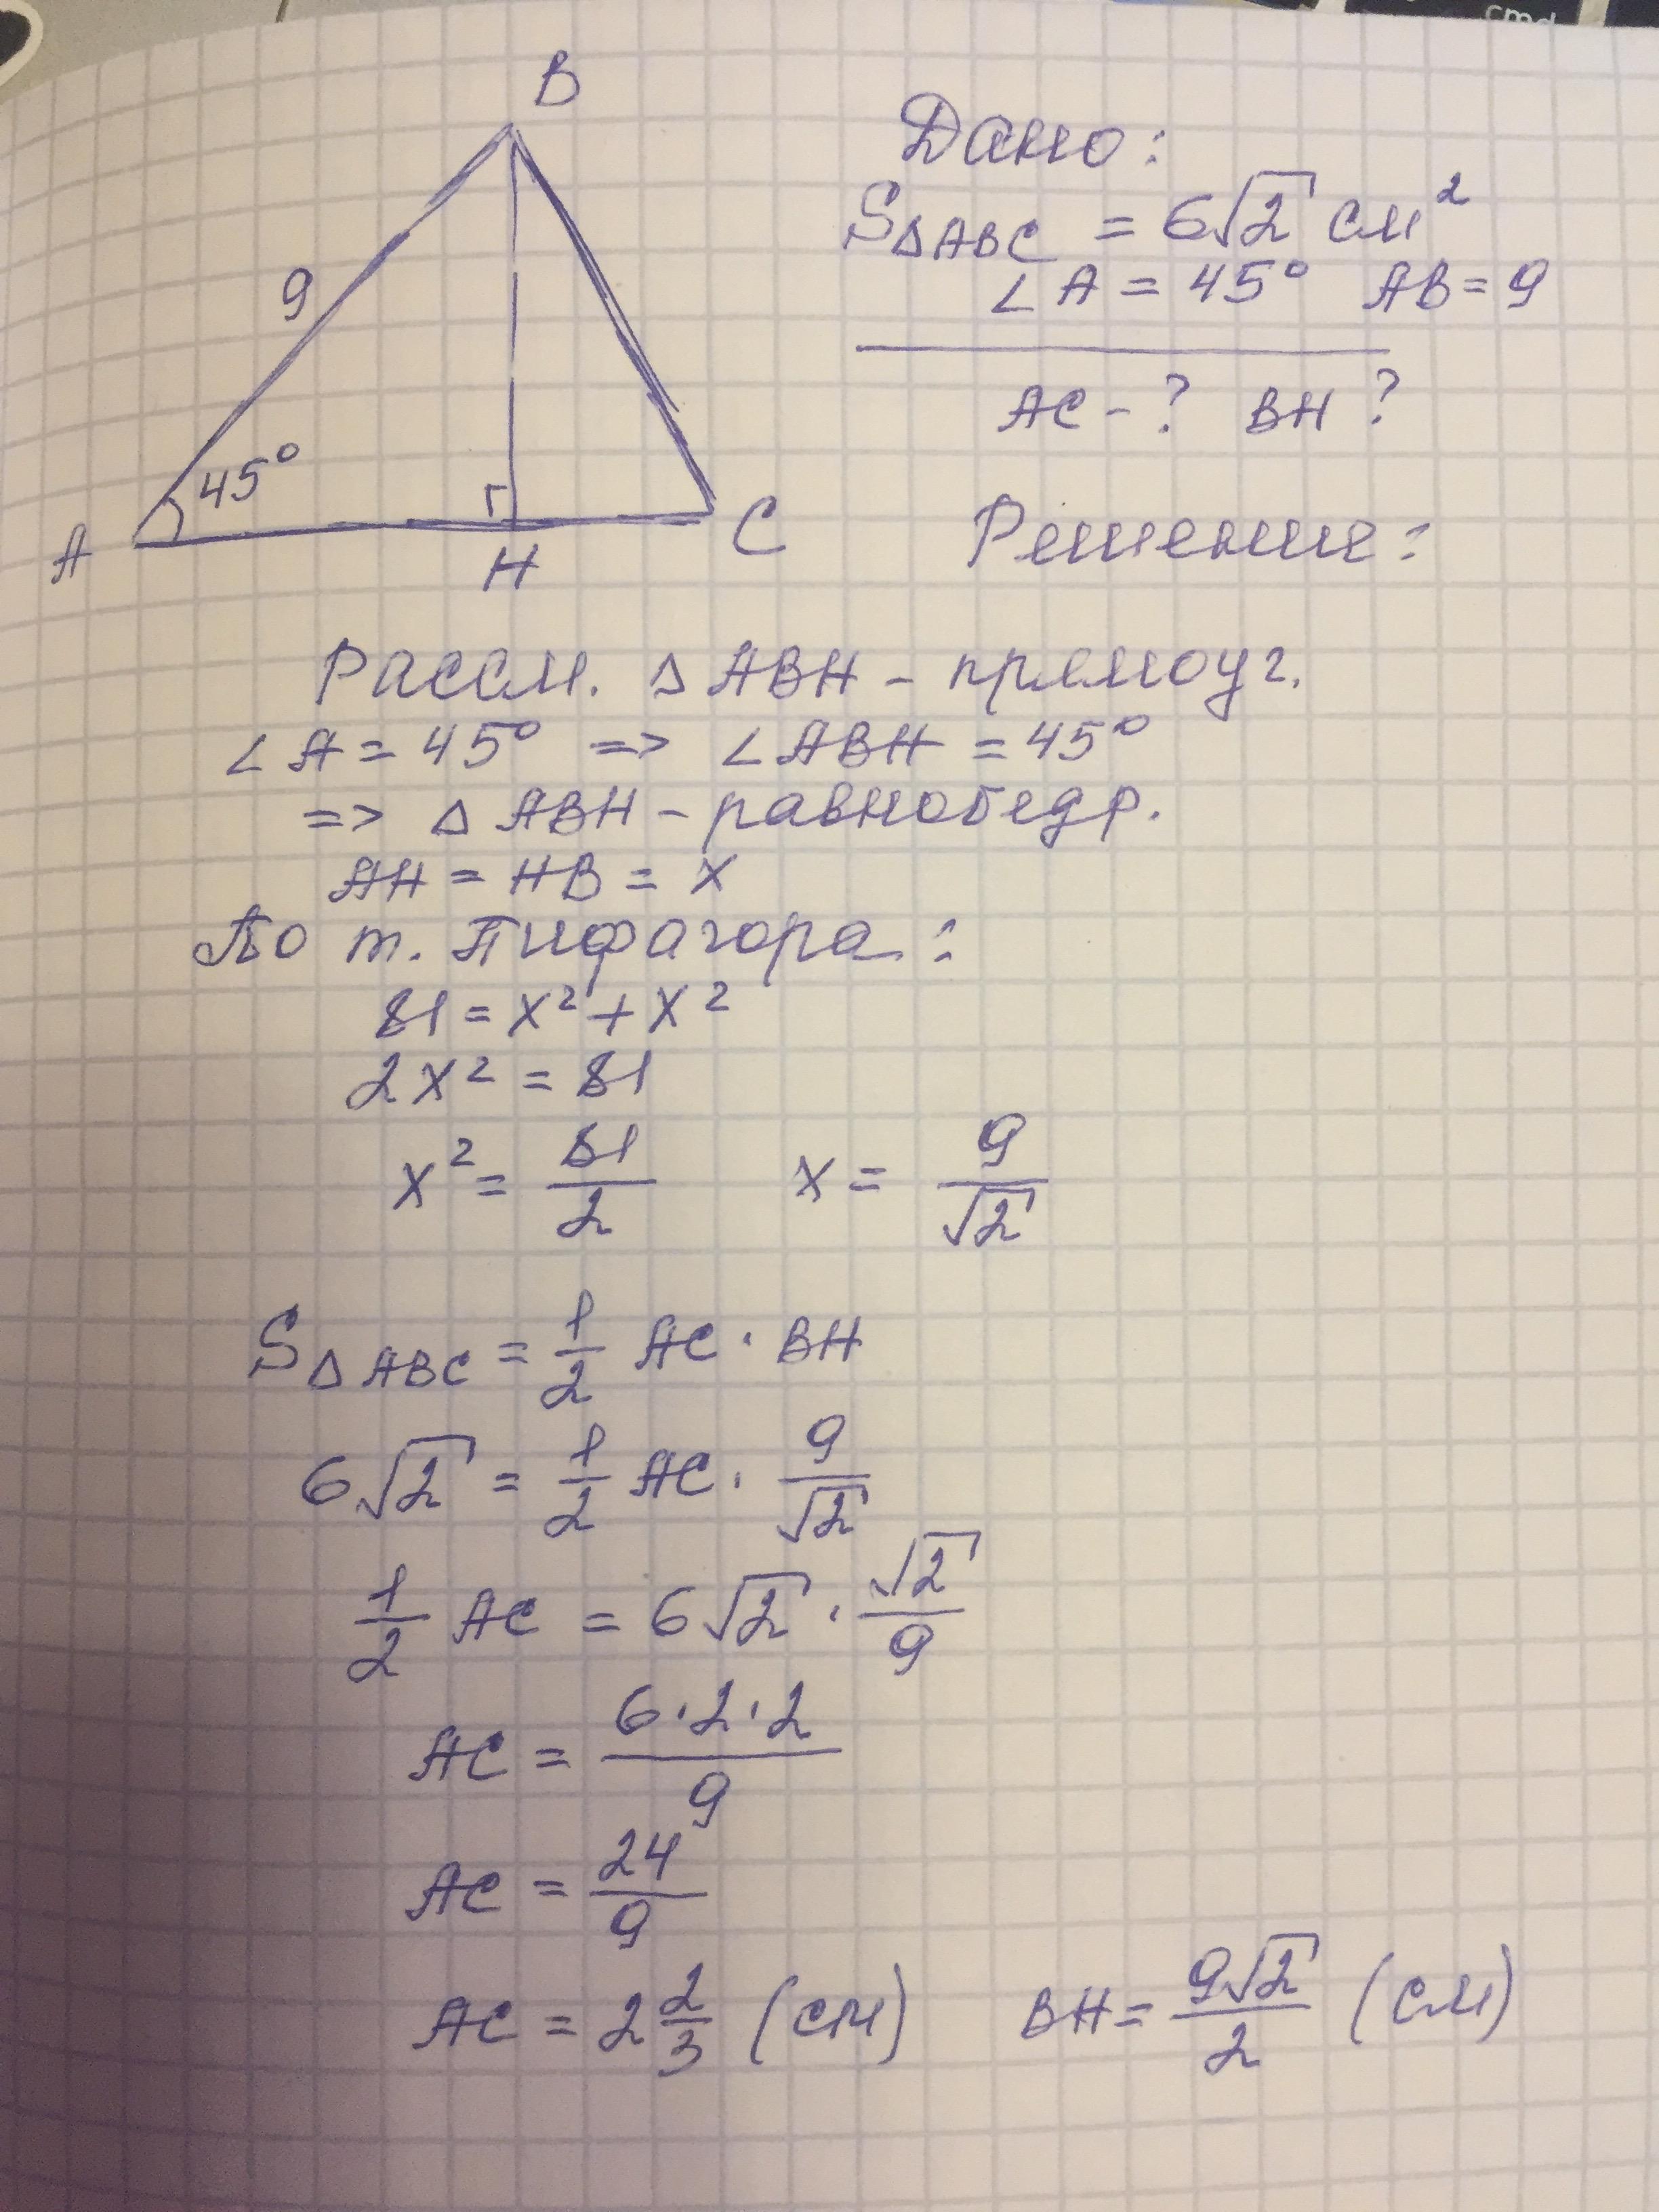 cmd
B
9
45°
A
H
C
Дано:
S△ABC = 6√2 см²
∠A = 45° AB = 9
AC - ? BH ?
Решение:
Рассм. △ ABH - прямоуг.
∠A = 45° => ∠ABH = 45°
=> △ ABH - равнобедр.
AH = HB = x
По т. Пифагора:
81 = x² + x²
2x² = 81
x² = 81/2 x = 9/√2
S△ABC = 1/2 AC · BH
6√2 = 1/2 AC · 9/√2
1/2 AC = 6√2 · √2/9
AC = 6·2·2/9
AC = 24/9
AC = 2 2/3 (см) BH = 9√2/2 (см)